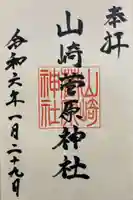 奉拝
山崎菅原神社
山崎
菅原
神社
令和六年一月二十九日